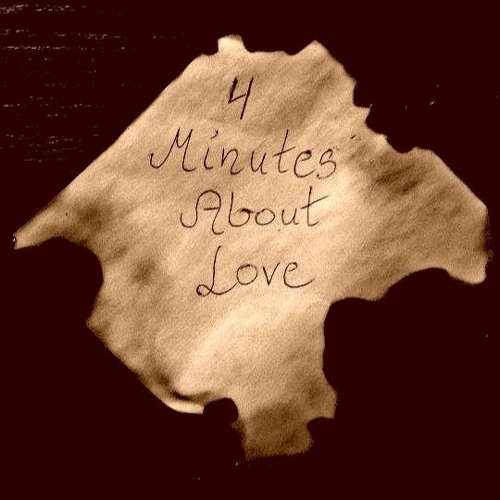 4
Minutes
About
Love